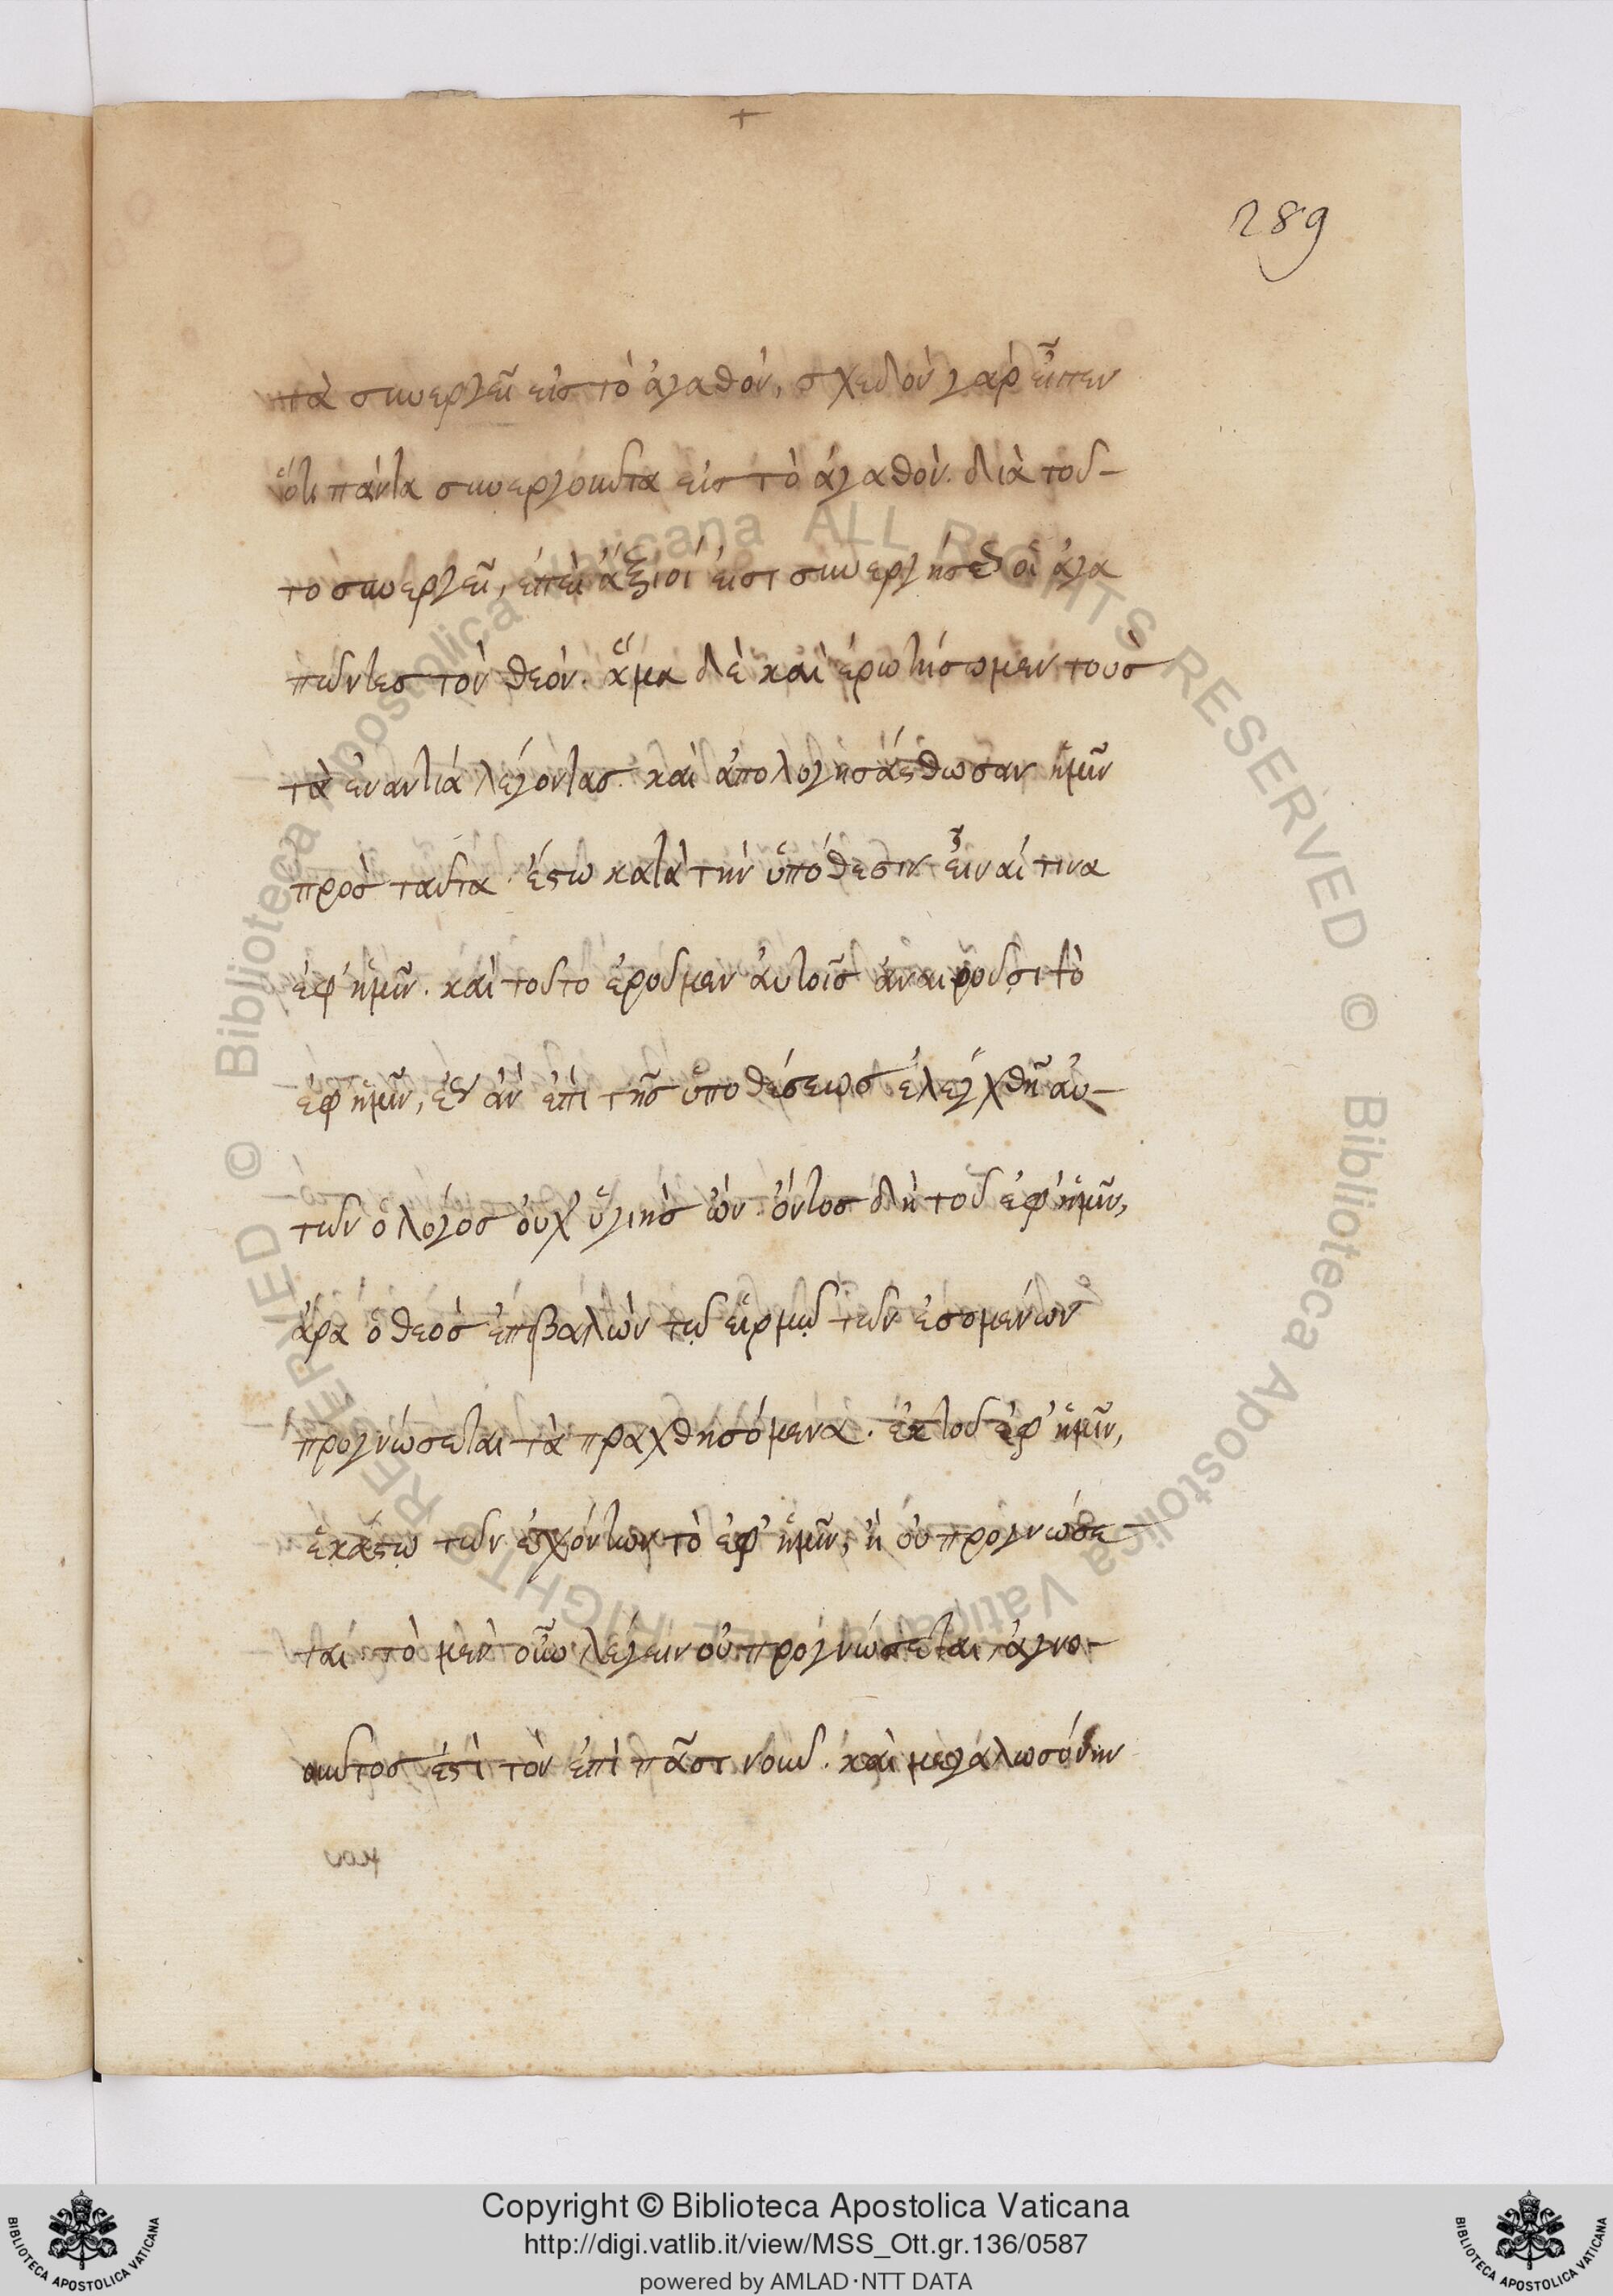 +
289
τὰ συνεργεῖ εἰς τὸ ἀγαθόν, σχεδὸν γὰρ εἶπεν
ὅτι πάντα συνεργοῦντα εἰς τὸ ἀγαθὸν. διὰ τοῦ-
το συνεργεῖ, ἐπεὶ ἄξιοί εἰσι συνεργήσε οἱ ἀγα
πῶντες τὸν θεόν. ἅμα δὲ καὶ ἐρωτήσωμεν τοὺς
τὰ ἐναντιά λέγοντας. καὶ ἀπολογησάσθωσαν ἡμῖν
πρὸς ταῦτα. ἔστω κατὰ τὴν ὑπόθεσιν εἶναί τινα
ἐφ' ἡμῖν. καὶ τοῦτο ἐροῦμεν ἀυτοῖς ἀναιροῦσι τὸ
ἐφ' ἡμῖν, ἂν ἐπὶ τῆς ὑποθέσεως ἐλεγχθῆ αὐ-
τῶν ὁ λόγος οὐχ ὑγιὴς ὢν. ὄντος δὴ τοῦ ἐφ' ἡμῖν,
ἆρα ὁ θεὸς ἐπιβαλὼν τῷ εἱρμῷ τῶν ἐσομένων
προγνώσεται τὰ πραχθησόμενα. ἐκ τοῦ ἐφ' ἡμῖν,
ἑκάστῳ τῶν ἐχόντων τὸ ἐφ' ἡμῖν, ἢ οὐ προγνώσε-
ται. τὸ μὲν οὖν λέγειν οὐ προγνώσεται, ἀγνο-
οῦντος ἐστὶ τὸν ἐπὶ πᾶσι νοῦν. καὶ μεγαλωσύνην
Copyright © Biblioteca Apostolica Vaticana
http://digi.vatlib.it/view/MSS_Ott.gr.136/0587
powered by AMLAD·NTT DATA
BIBLIOTECA APOSTOLICA VATICANA
BIBLIOTECA APOSTOLICA VATICANA
© Biblioteca Apostolica Vaticana ALL RIGHTS RESERVED © Biblioteca Apostolica Vaticana ALL RIGHTS RESERVED